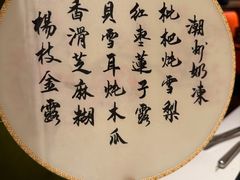 潮州奶凍
枇杷炖雪梨
紅棗蓮子露
貝雪耳炖木瓜
香滑芝麻糊
楊枝金露